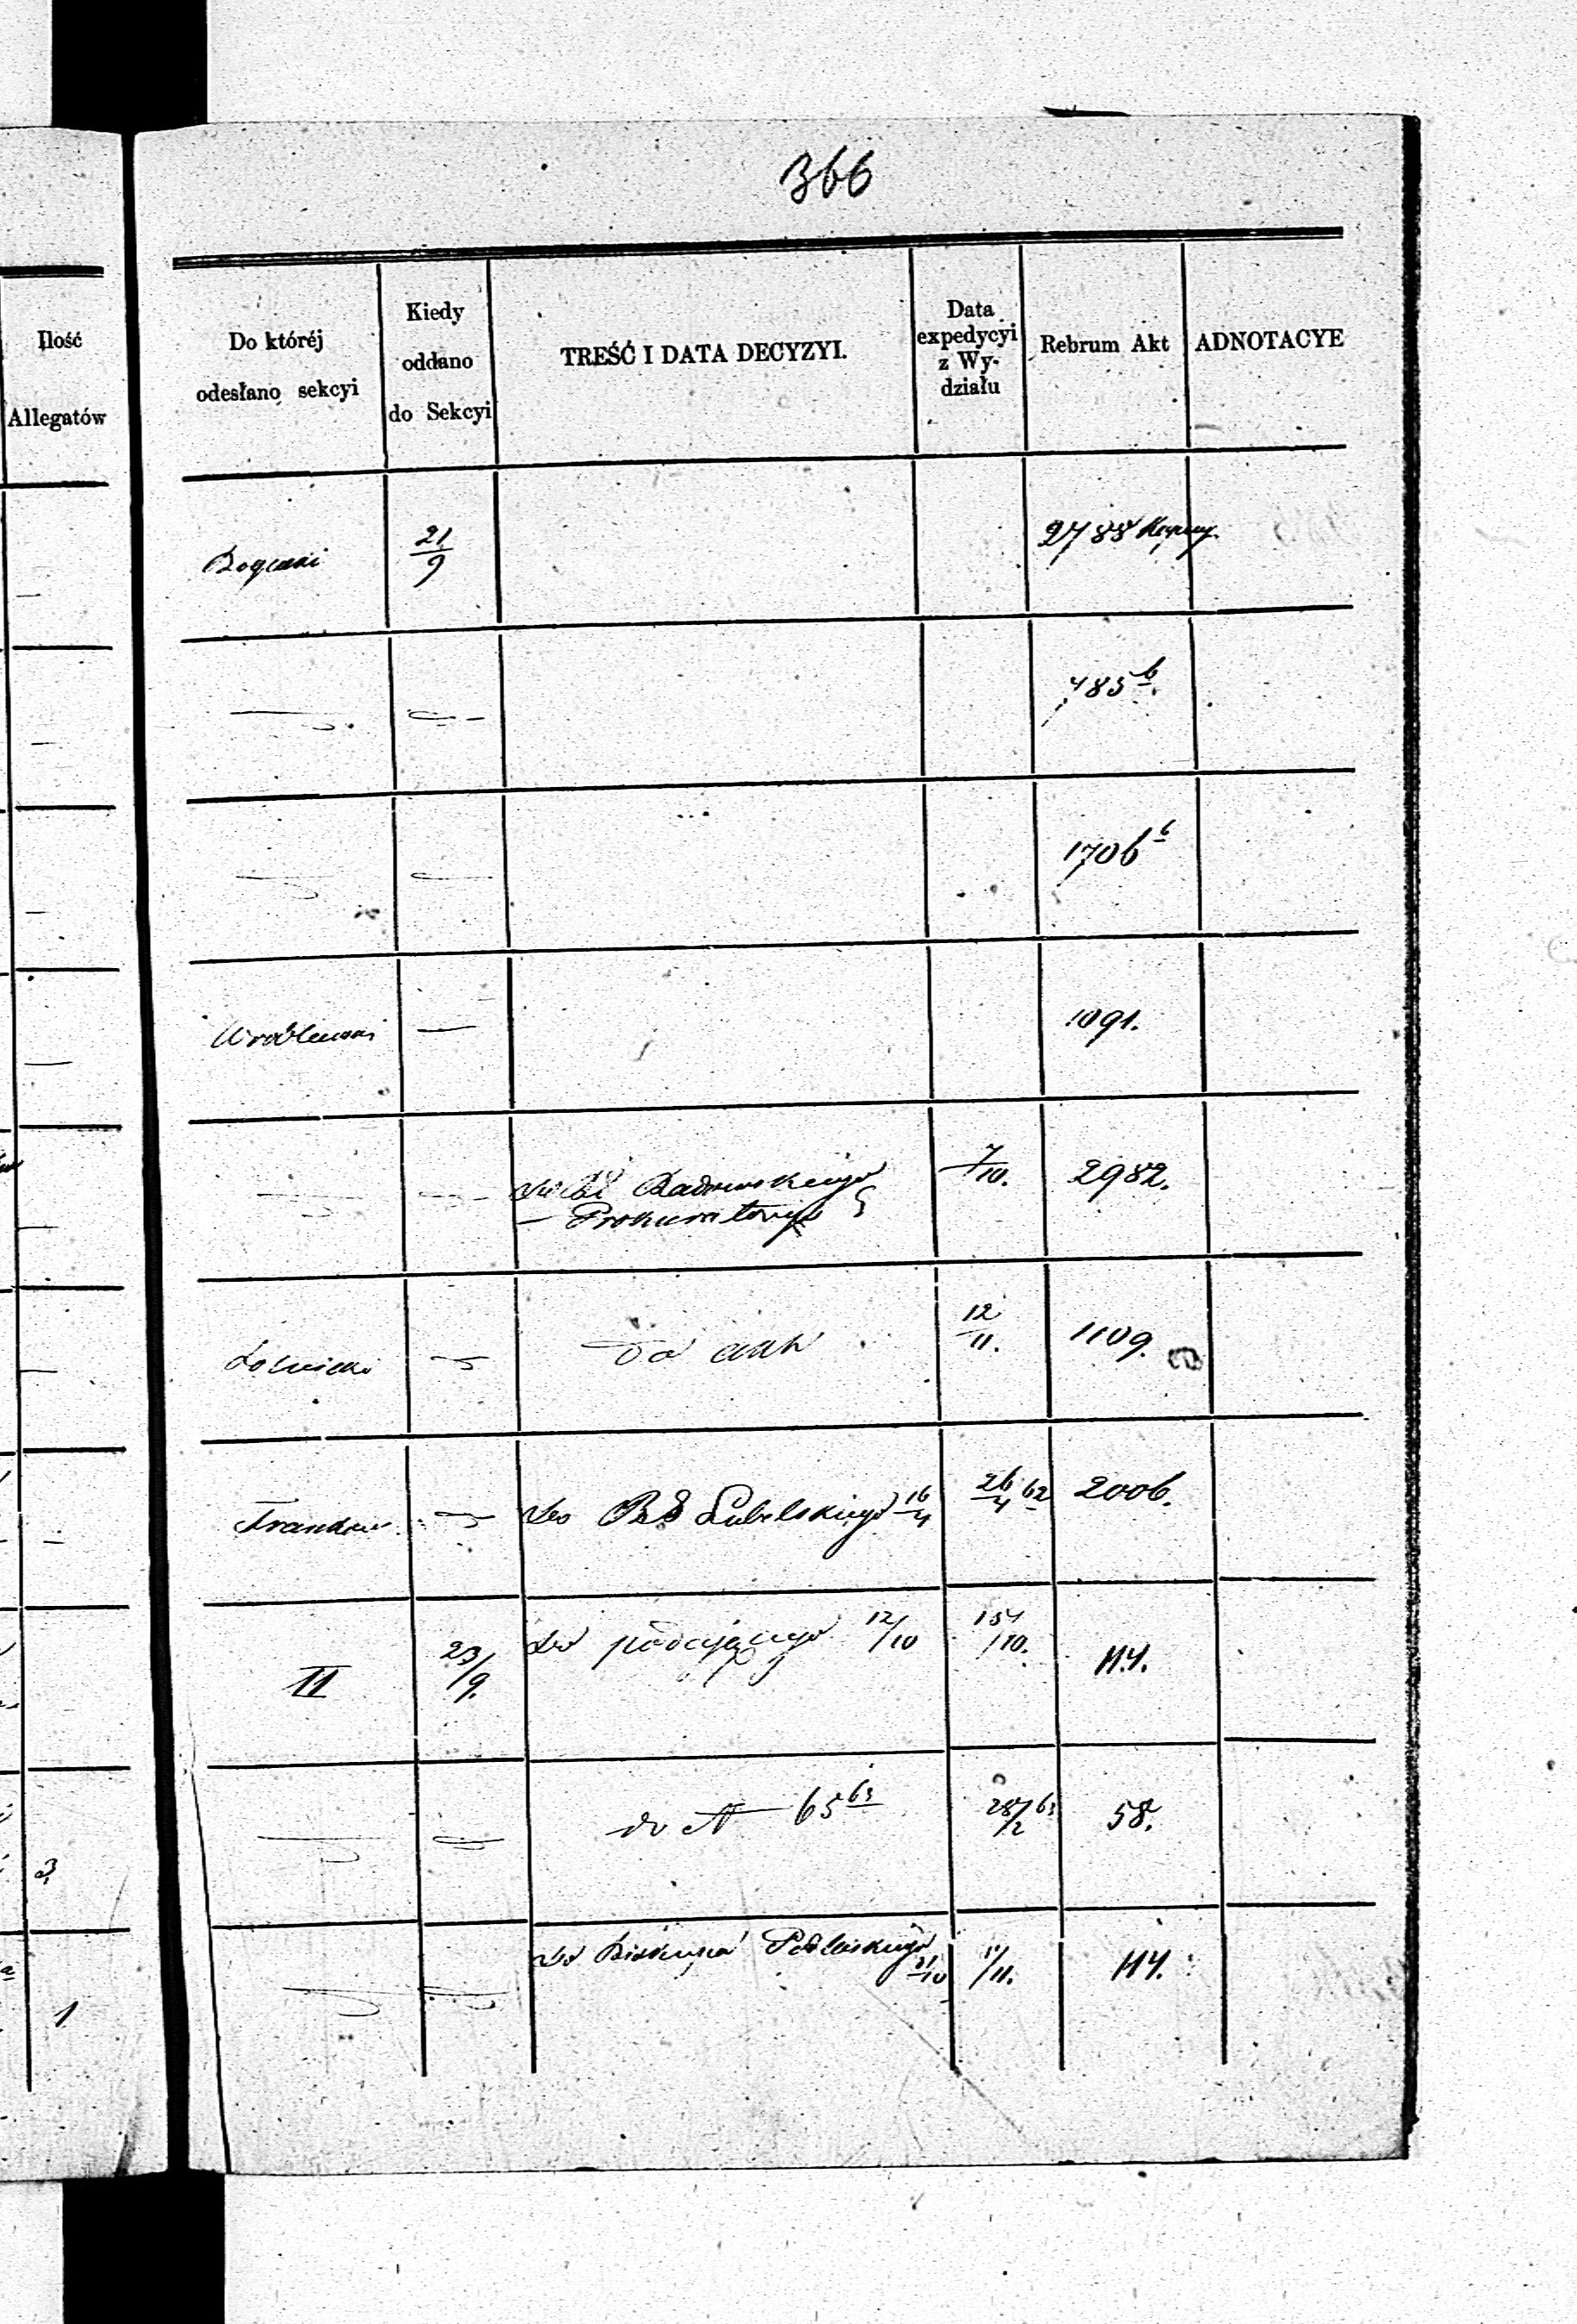 366
Ilość
Allegatów
Do któréj
odesłano sekcyi
Kiedy
oddano
do Sekcyi
TREŚĆ I DATA DECYZYI.
Data
expedycyi
z Wy-
działu
Rebrum Akt
ADNOTACYE
21/9
2788
485 b.
1706 b
Wroblewski
1091.
Radomskiego
7/10.
2982.
— Prokuratoryi
Do akt
12/11.
1109.
Do RG Lubelskiego 16/4
26/4 62
2006.
II
23/9.
Do podającego 12/10
15/10.
114.
do N 65 63
28/2 63
58.
3
Do Biskupa Podlaskiego
31/10
11/11.
114.
1